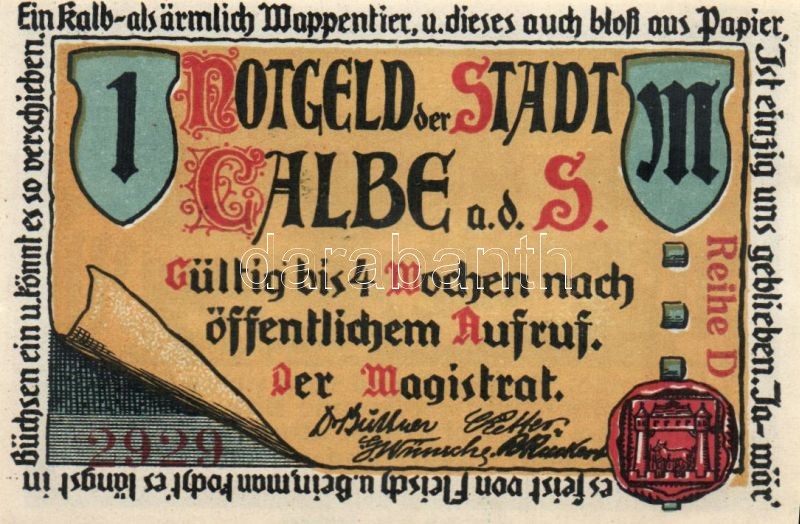 Ein Kalb-als ärmlich Wappentier, u. dieses auch bloß aus Papier,
Ist einzig uns geblieben. Ja- wär'
es feist von Fleisch u. Bein, man kocht' es längst in
Büchsen ein u. könnt es so verschieben.
1 NOTGELD der STADT M
CALBE a.d. S.
Gültig bis 4 Wochen nach
öffentlichem Aufruf.
Der Magistrat.
Reihe D
Dr Büttner
G. Wunsche
2929
darabanth